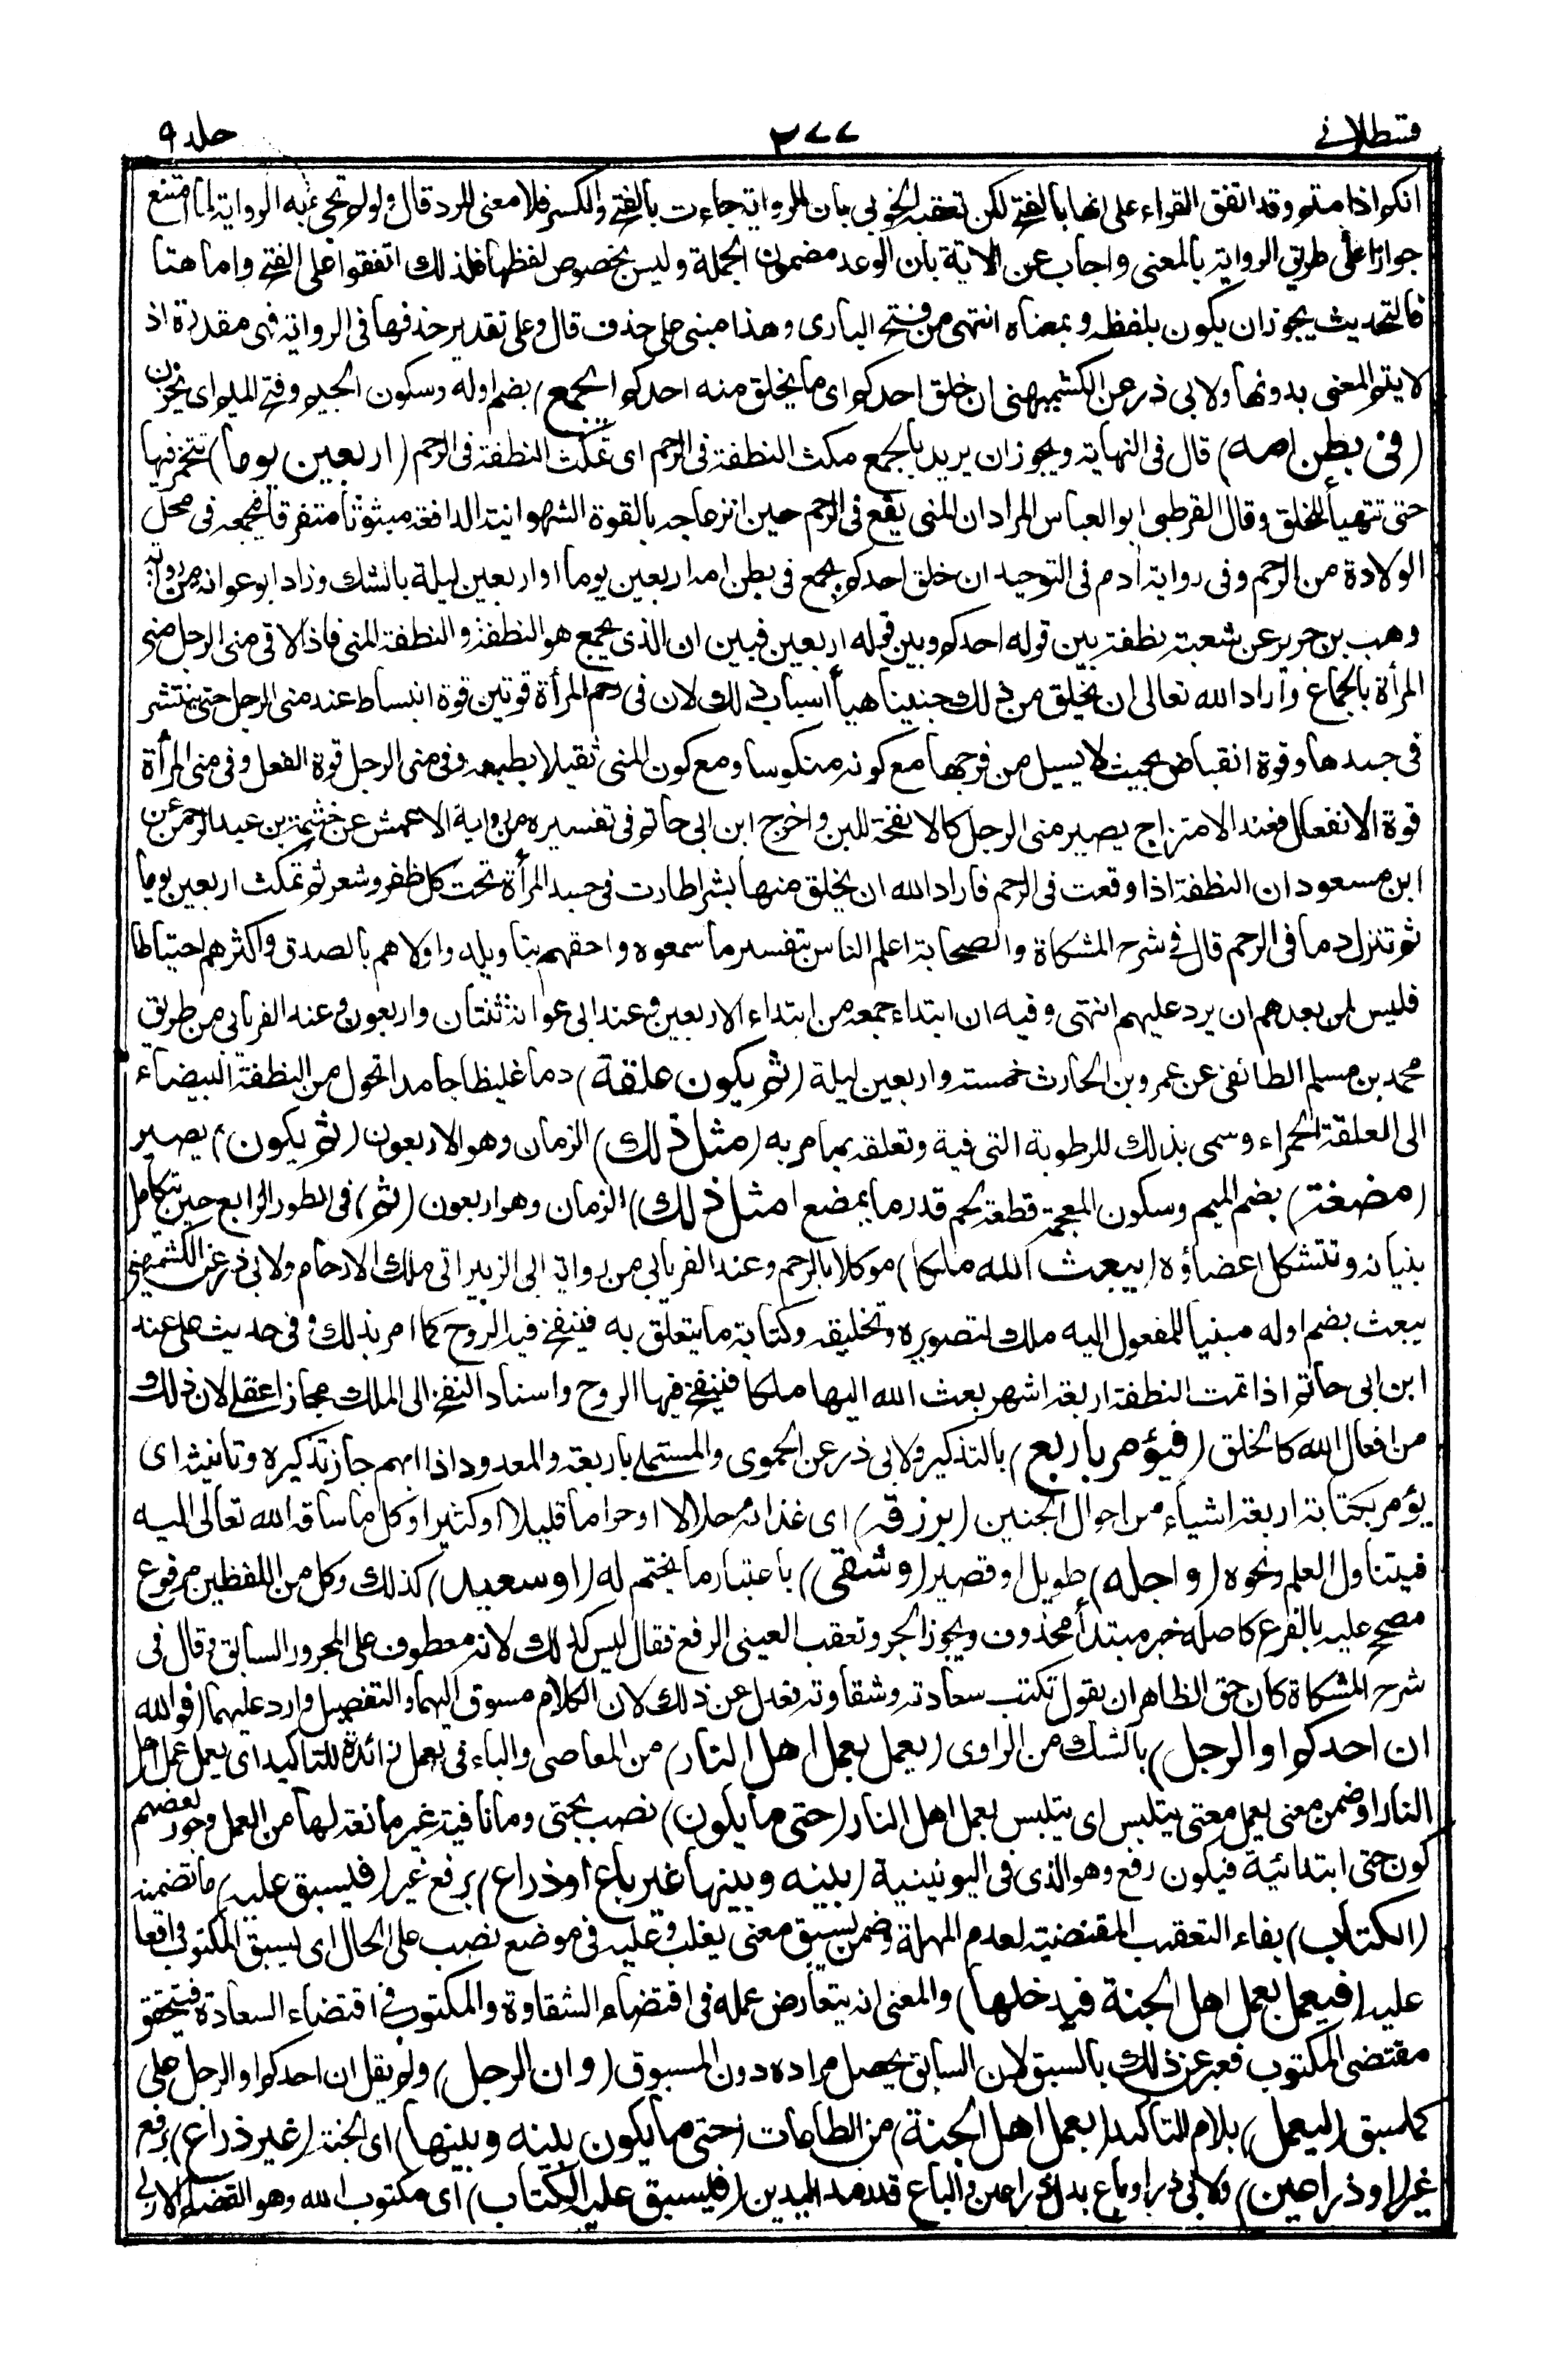 قسطلانے ٢٧٧ جلد ٩
انكم اذا متم وقد اتفق القراء على انها بالفتح لكن تعقبه الخوبي بان الرواية جاءت بالفتح والكسر فلا معنى للرد قال ولو لم تجئ به الرواية لما امتنع
جوازا على طريق الرواية بالمعنى واجاب عن الاية بان الوعد مضمون الجملة وليس بخصوص لفظها فلذلك اتفقوا على الفتح واما هنا
فالتحديث يجوز ان يكون بلفظه وبمعناه انتهى من فتح البارى وهذا مبنى على حذف قال وعلى تقدير حذفها فى الرواية فهى مقدرة اذ
لا يتم المعنى بدونها ولابى ذر عن الكشميهنى ان خلق احدكم اى ما يخلق منه احدكم (يجمع) بضم اوله وسكون الجيم وفتح الميم اى يخزن
(فى بطن امه) قال فى النهاية ويجوز ان يريد بالجمع مكث النطفة فى الرحم اى تمكث النطفة فى الرحم (اربعين يوما) تتخمر فيها
حتى تتهيأ للخلق وقال القرطبى ابو العباس المراد ان المنى يقع فى الرحم حين انزعاجه بالقوة الشهوانية الدافعة مبثوثا متفرقا فيجمعه فى محل
الولادة من الرحم وفى رواية آدم فى التوحيد ان خلق احدكم يجمع فى بطن امه اربعين يوما او اربعين ليلة بالشك وزاد ابو عوانه من رواية
وهب بن جرير عن شعبة نطفة بين قوله احدكم وبين قوله اربعين فبين ان الذى يجمع هو النطفة والنطفة المنى فاذا لاقى منى الرجل منى
المرأة بالجماع واراد الله تعالى ان يخلق من ذلك جنينا هيأ اسباب ذلك لان فى رحم المرأة قوتين قوة انبساط عند منى الرجل حتى ينتشر
فى جسدها وقوة انقباض بحيث لا يسيل من فرجها مع كونه منكوسا ومع كون المنى ثقيلا بطبعه وفى منى الرجل قوة الفعل وفى منى المرأة
قوة الانفعال فعند الامتزاج يصير منى الرجل كالانفحة للبن واخرج ابن ابى حاتم فى تفسيره من رواية الاعمش عن خيثمة بن عبد الرحمن عن
ابن مسعود ان النطفة اذا وقعت فى الرحم فاراد الله ان يخلق منها بشرا طارت فى جسد المرأة تحت كل ظفر وشعر ثم تمكث اربعين يوما
ثم تنزل دما فى الرحم قال فى شرح المشكاة والصحابة اعلم الناس بتفسير ما سمعوه واحقهم بتاويله واولاهم بالصدق واكثرهم احتياطا
فليس لمن بعدهم ان يرد عليهم انتهى وفيه ان ابتداء جمعه من ابتداء الاربعين وعند ابى عوانة ثنتان واربعون وعند الفريابى من طريق
محمد بن مسلم الطائفى عن عمرو بن الحارث خمسة واربعين ليلة (ثم يكون علقة) دما غليظا جامدا تحول من النطفة البيضاء
الى العلقة الحمراء وسمى بذلك للرطوبة التى فية وتعلقه بما مر به (مثل ذلك) الزمان وهو الاربعون (ثم يكون) يصير
(مضغة) بضم الميم وسكون المعجمة قطعة لحم قدر ما يمضغ (مثل ذلك) الزمان وهو اربعون (ثم) فى الطور الرابع حين تكامل
بنيانه وتتشكل اعضاؤه (يبعث الله ملكا) موكلا بالرحم وعند الفريابى من رواية ابى الزبير اتى ملك الارحام ولابى ذر عن الكشميهنى
يبعث بضم اوله مبنيا للمفعول اليه ملك لتصويره وتخليقه وكتابة ما يتعلق به فينفخ فيه الروح كما امر بذلك وفى حديث على عند
ابن ابى حاتم اذا تمت النطفة اربعة اشهر بعث الله اليها ملكا فينفخ فيها الروح واسناد النفخ الى الملك مجاز عقلى لان ذلك
من افعال الله كالخلق (فيؤمر باربع) بالتذكير ولابى ذر عن الحموى والمستملى باربعة والمعدود اذا ابهم جاز تذكيره وتانيثه اى
يؤمر بكتابة اربعة اشياء من احوال الجنين (برزقه) اى غذائه حلالا او حراما قليلا او كثيرا وكل ما ساقه الله تعالى اليه
فيتناول العلم ونحوه (واجله) طويل او قصير (وشقى) باعتبار ما يختم له (او سعيد) كذلك وكل من اللفظين مرفوع
مصحح عليه بالفرع كاصله خبر مبتدأ محذوف ويجوز الجر وتعقب العينى الرفع فقال ليس كذلك لانه معطوف على المجرور السابق وقال فى
شرح المشكاة كان حق الظاهر ان يقول تكتب سعادته وشقاوته فعدل عن ذلك لان الكلام مسوق اليهما والتفصيل وارد عليهما (فوالله
ان احدكم او الرجل) بالشك من الراوى (يعمل بعمل اهل النار) من المعاصى والباء فى بعمل زائدة للتاكيد اى يعمل عمل اهل
النار او ضمن معنى يعمل معنى يتلبس اى يتلبس بعمل اهل النار (حتى ما يكون) نصب بحتى وما نافية غير مانعة لها من العمل وجوز بعضهم
كون حتى ابتدائية فيكون رفع وهو الذى فى اليونينية (بينه وبينها غير باع او ذراع) برفع غير (فيسبق عليه) ما تضمنه
(الكتاب) بفاء التعقيب المقتضية لعدم المهلة وضمن يسبق معنى يغلب وعليه فى موضع نصب على الحال اى يسبق المكتوب واقعا
عليه (فيعمل بعمل اهل الجنة فيدخلها) والمعنى انه يتعارض عمله فى اقتضاء الشقاوة والمكتوب فى اقتضاء السعادة فيتحقق
مقتضى المكتوب فعبر عن ذلك بالسبق لان السابق يحصل مراده دون المسبوق (وان الرجل) ولم يقل ان احدكم او الرجل على
كما سبق (ليعمل) بلام التاكيد (بعمل اهل الجنة) من الطاعات (حتى ما يكون بينه وبينها) اى الجنة (غير ذراع) برفع
غير (او ذراعين) ولابى ذر او باع بدل ذراعين والباع قدر مد اليدين (فيسبق عليه الكتاب) اى مكتوب الله وهو القضاء الازلى